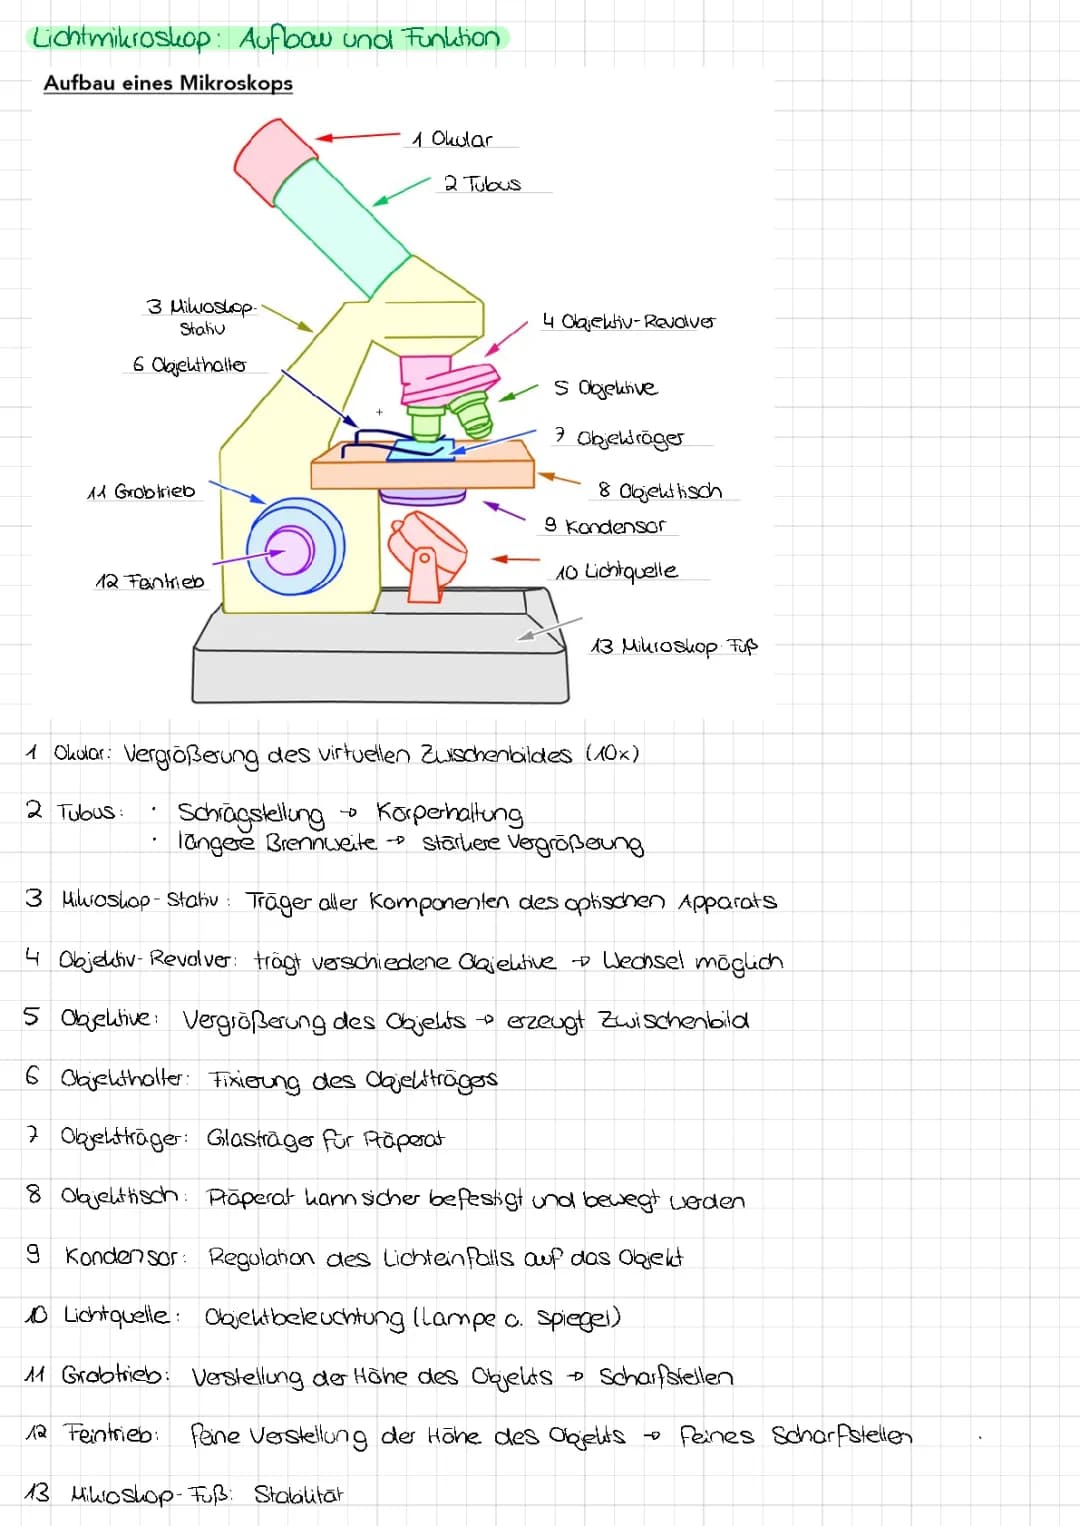 Lichtmikroskop: Aufbau und Funktion
Aufbau eines Mikroskops
1 Okular
2 Tubus
3 Mikroskop-
Stativ
4 Objektiv-Revolver
6 Objekthalter
5 Objektive
7 Objektträger
11 Grobtrieb
8 Objekttisch
9 Kondensor
12 Feintrieb
10 Lichtquelle
13 Mikroskop-Fuß
1 Okular: Vergrößerung des virtuellen Zwischenbildes (10x)
2 Tubus: · Schrägstellung → Körperhaltung
· längere Brennweite → stärkere Vergrößerung
3 Mikroskop-Stativ: Träger aller Komponenten des optischen Apparats
4 Objektiv-Revolver: trägt verschiedene Objektive → Wechsel möglich
5 Objektive: Vergrößerung des Objekts → erzeugt Zwischenbild
6 Objekthalter: Fixierung des Objektträgers
7 Objektträger: Glasträger für Präperat
8 Objekttisch: Präperat kann sicher befestigt und bewegt werden
9 Kondensor: Regulation des Lichteinfalls auf das Objekt
10 Lichtquelle: Objektbeleuchtung (Lampe o. Spiegel)
11 Grobtrieb: Verstellung der Höhe des Objekts → Scharfstellen
12 Feintrieb: feine Verstellung der Höhe des Objekts → feines Scharfstellen
13 Mikroskop-Fuß: Stabilität